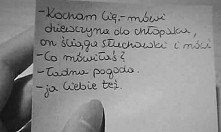 - Kocham Cię,- mówi
dziewczyna do chłopaka,
on ściąga słuchawki i mówi
- Co mówiłaś?
- Ładna pogoda.
- ja Ciebie też.